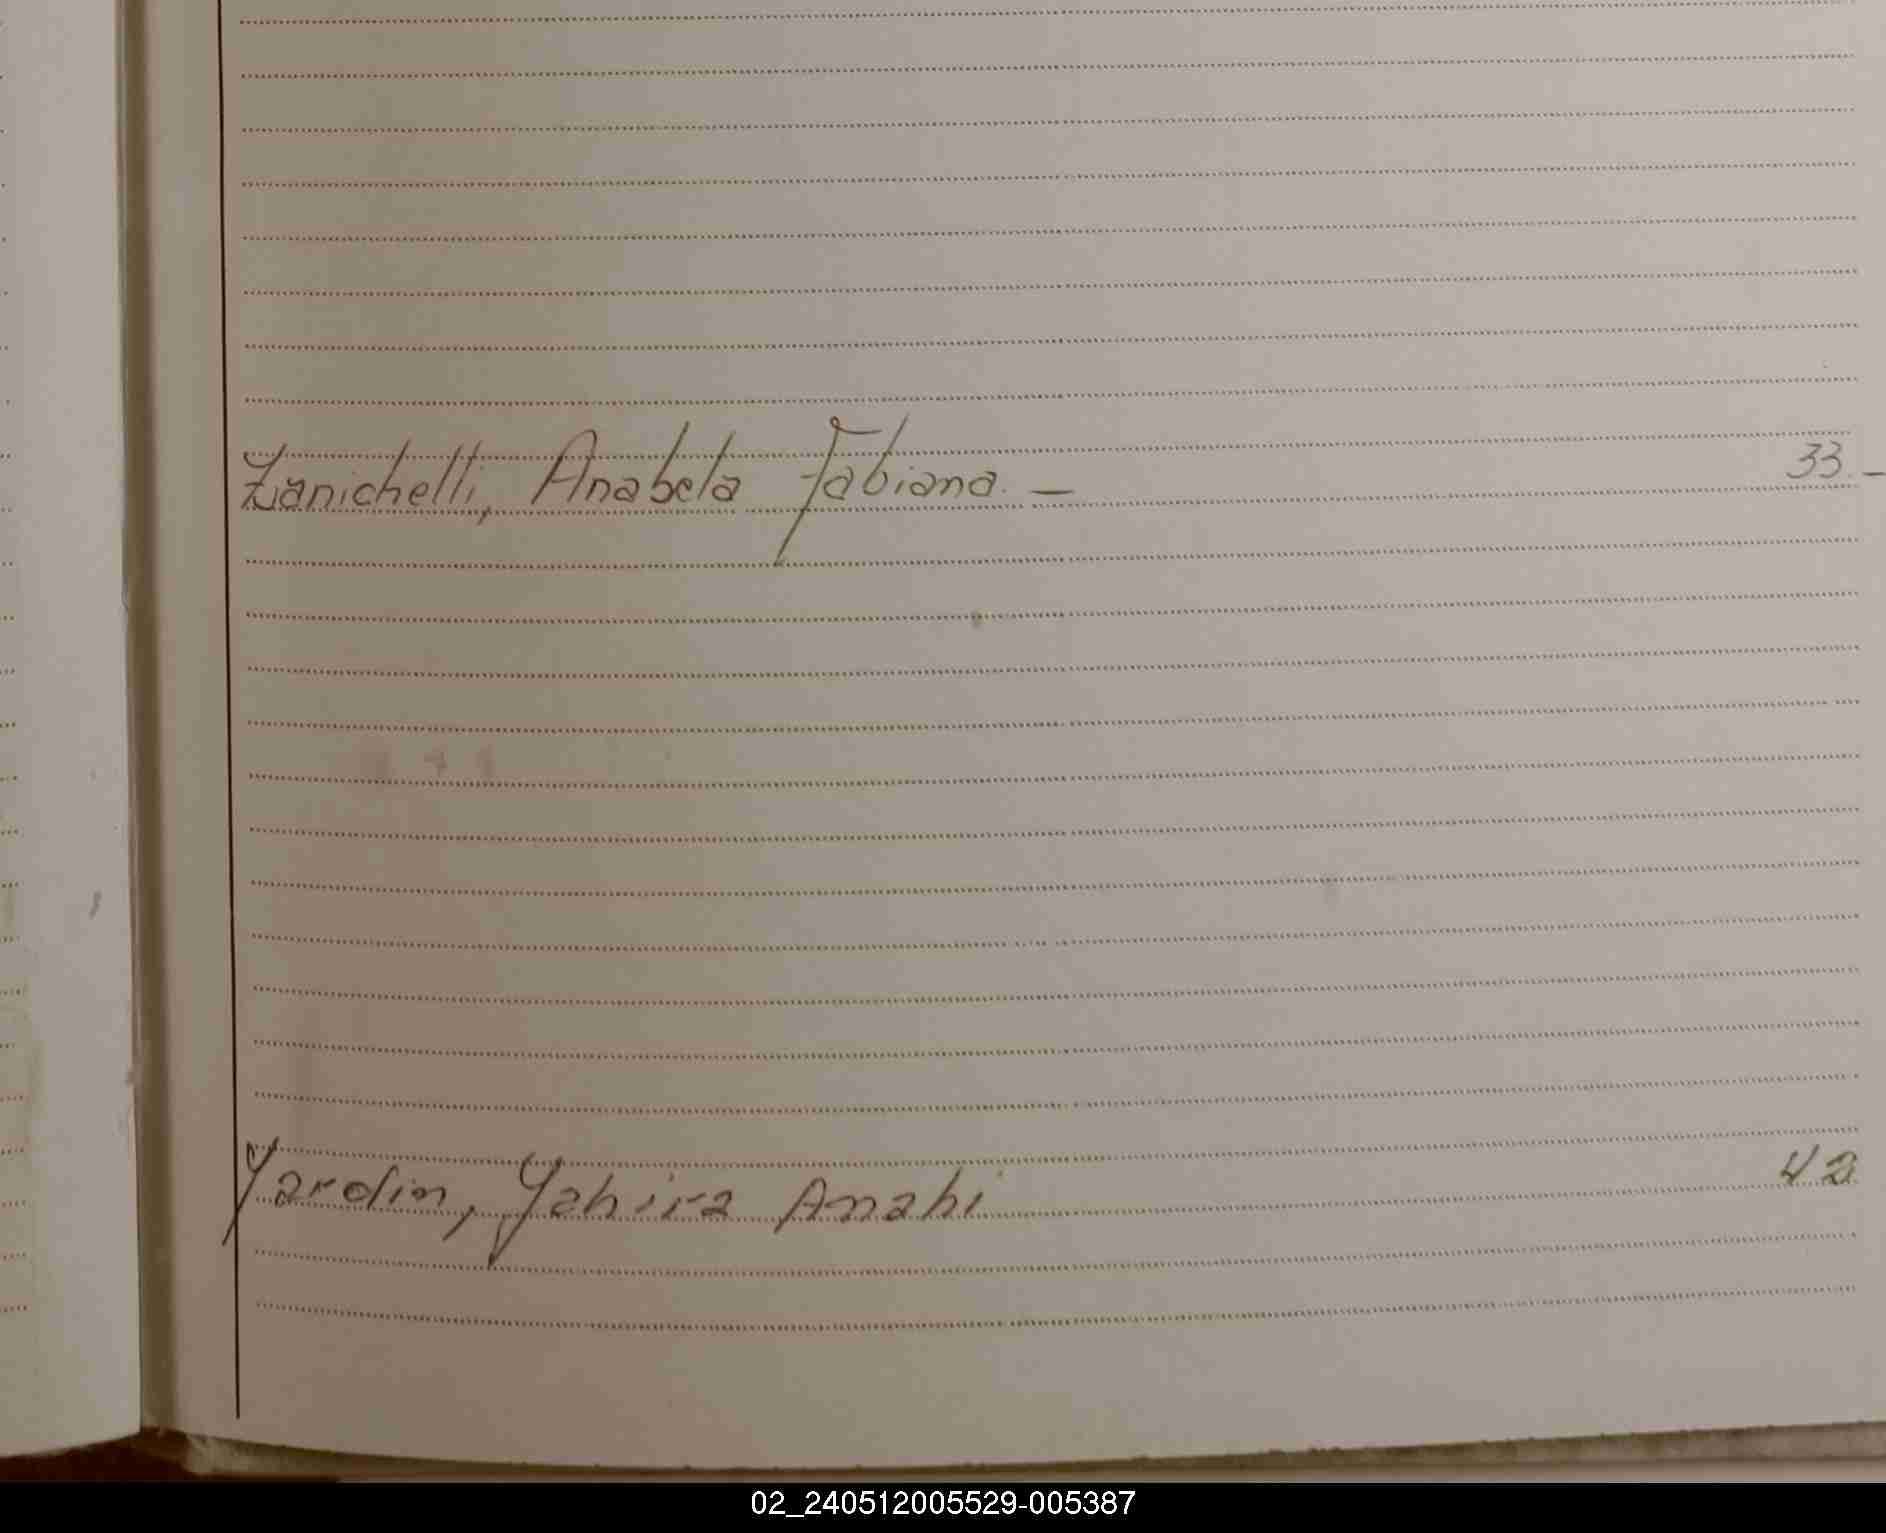 Zanichelli, Anabela Fabiana. — 33. —
Yardin, Yahira Anahi 42
02_240512005529-005387